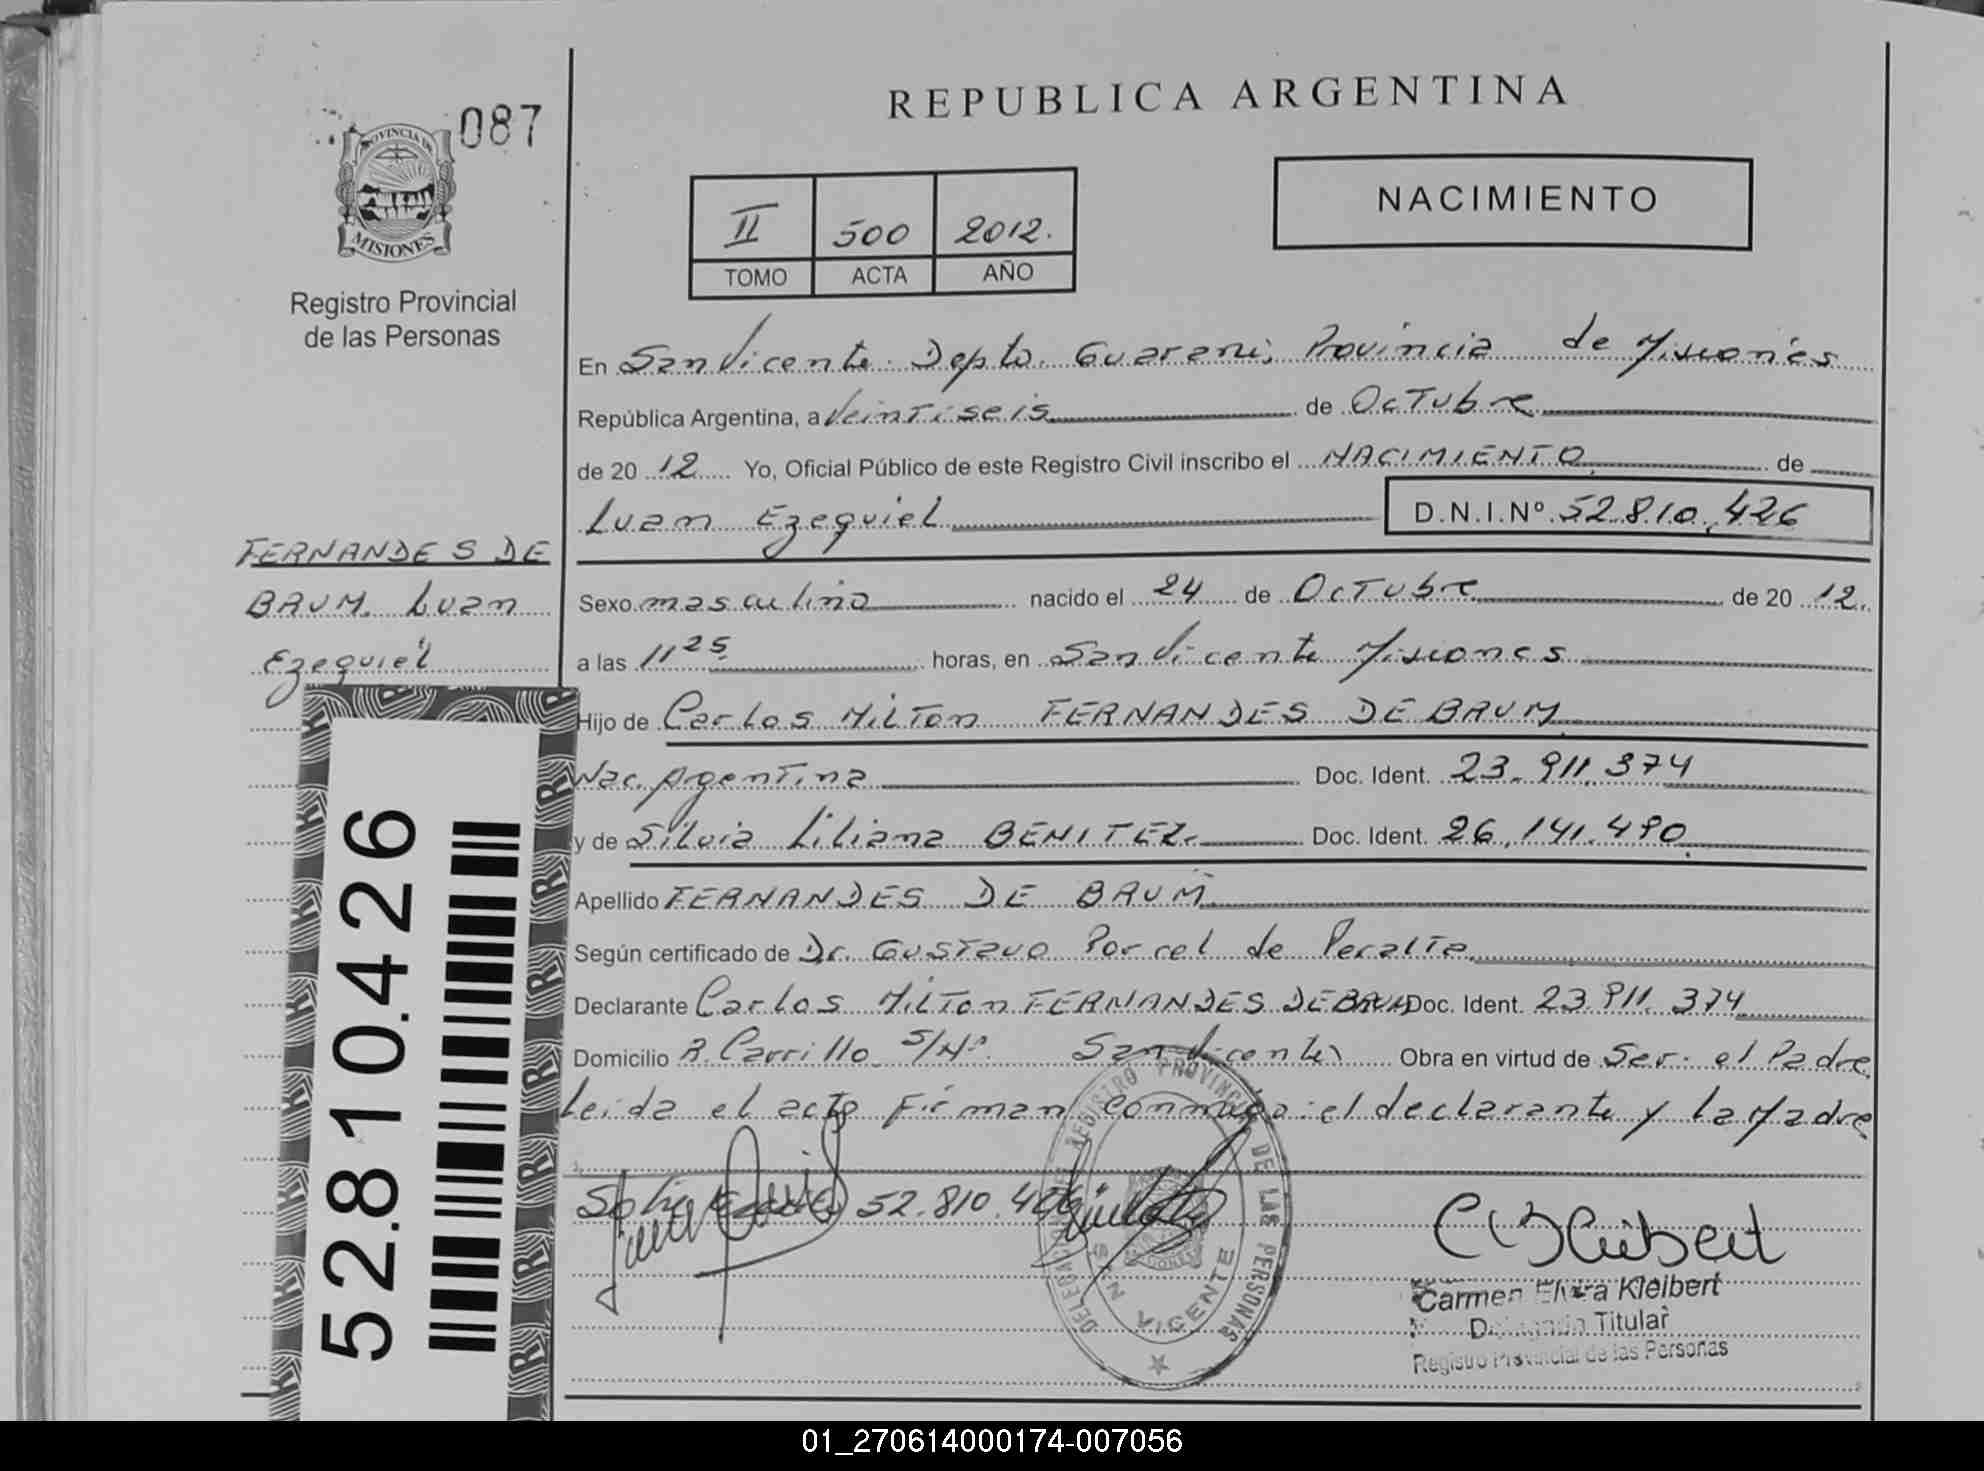 087
PROVINCIA DE
MISIONES
Registro Provincial
de las Personas
REPUBLICA ARGENTINA
II 500 2012.
TOMO ACTA AÑO
NACIMIENTO
En San Vicente Depto. Guarani, Provincia de Misiones
República Argentina, a Veintiseis de Octubre
de 20 12 Yo, Oficial Público de este Registro Civil inscribo el NACIMIENTO de
Luan Ezequiel D.N.I.Nº 52.810.426
FERNANDES DE
BAUM Luan
Ezequiel
Sexo masculino nacido el 24 de Octubre de 20 12.
a las 11 25 horas, en San Vicente Misiones
Hijo de Carlos Milton FERNANDES DE BAUM
Nac. Argentina Doc. Ident. 23.911.374
y de Silvia Liliana BENITEZ Doc. Ident. 26.141.490
Apellido FERNANDES DE BAUM
Según certificado de Dr. Gustavo Porcel de Peralta
Declarante Carlos Milton FERNANDES DE BAUM Doc. Ident. 23.911.374
Domicilio R. Carrillo S/Nº San Vicente Obra en virtud de Ser el Padre
Leida el acta Firman conmigo el declarante y la Madre
52.810.426
52.810.426
DELEGACION REGISTRO PROVINCIAL DE LAS PERSONAS
SAN VICENTE
Carmen Elvira Kleibert
Delegada Titular
Registro Provincial de las Personas
01_270614000174-007056